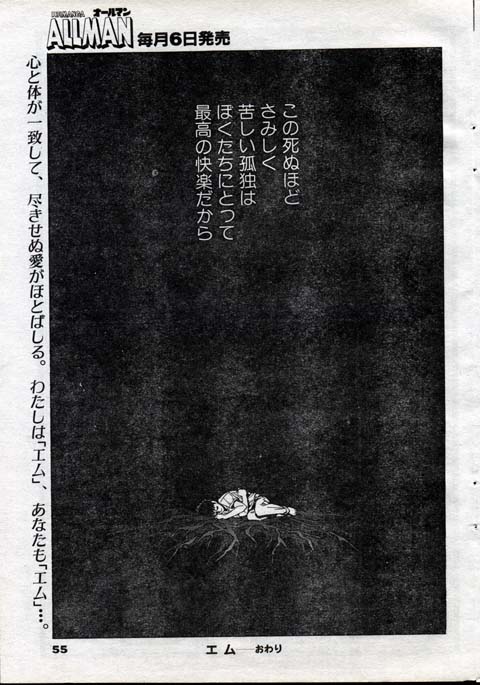 BIRMANGA
オールマン
ALLMAN 毎月6日発売
この死ぬほど
さみしく
苦しい孤独は
ぼくたちにとって
最高の快楽だから
心と体が一致して、尽きせぬ愛がほとばしる。わたしは「エム」、あなたも「エム」…。
55
エム――おわり